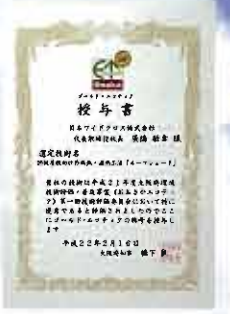 ゴールド・エコテック
授与書
日本ワイドクロス株式会社
代表取締役社長 様
選定技術名
貴社の技術は平成21年度大阪府環境
技術評価・普及事業（おおさかエコテッ
ク）第一回技術評価委員会において特に
優秀であると評価されましたのでここ
にゴールド・エコテックの称号を授与し
ます
平成22年2月16日
大阪府知事 橋下 徹